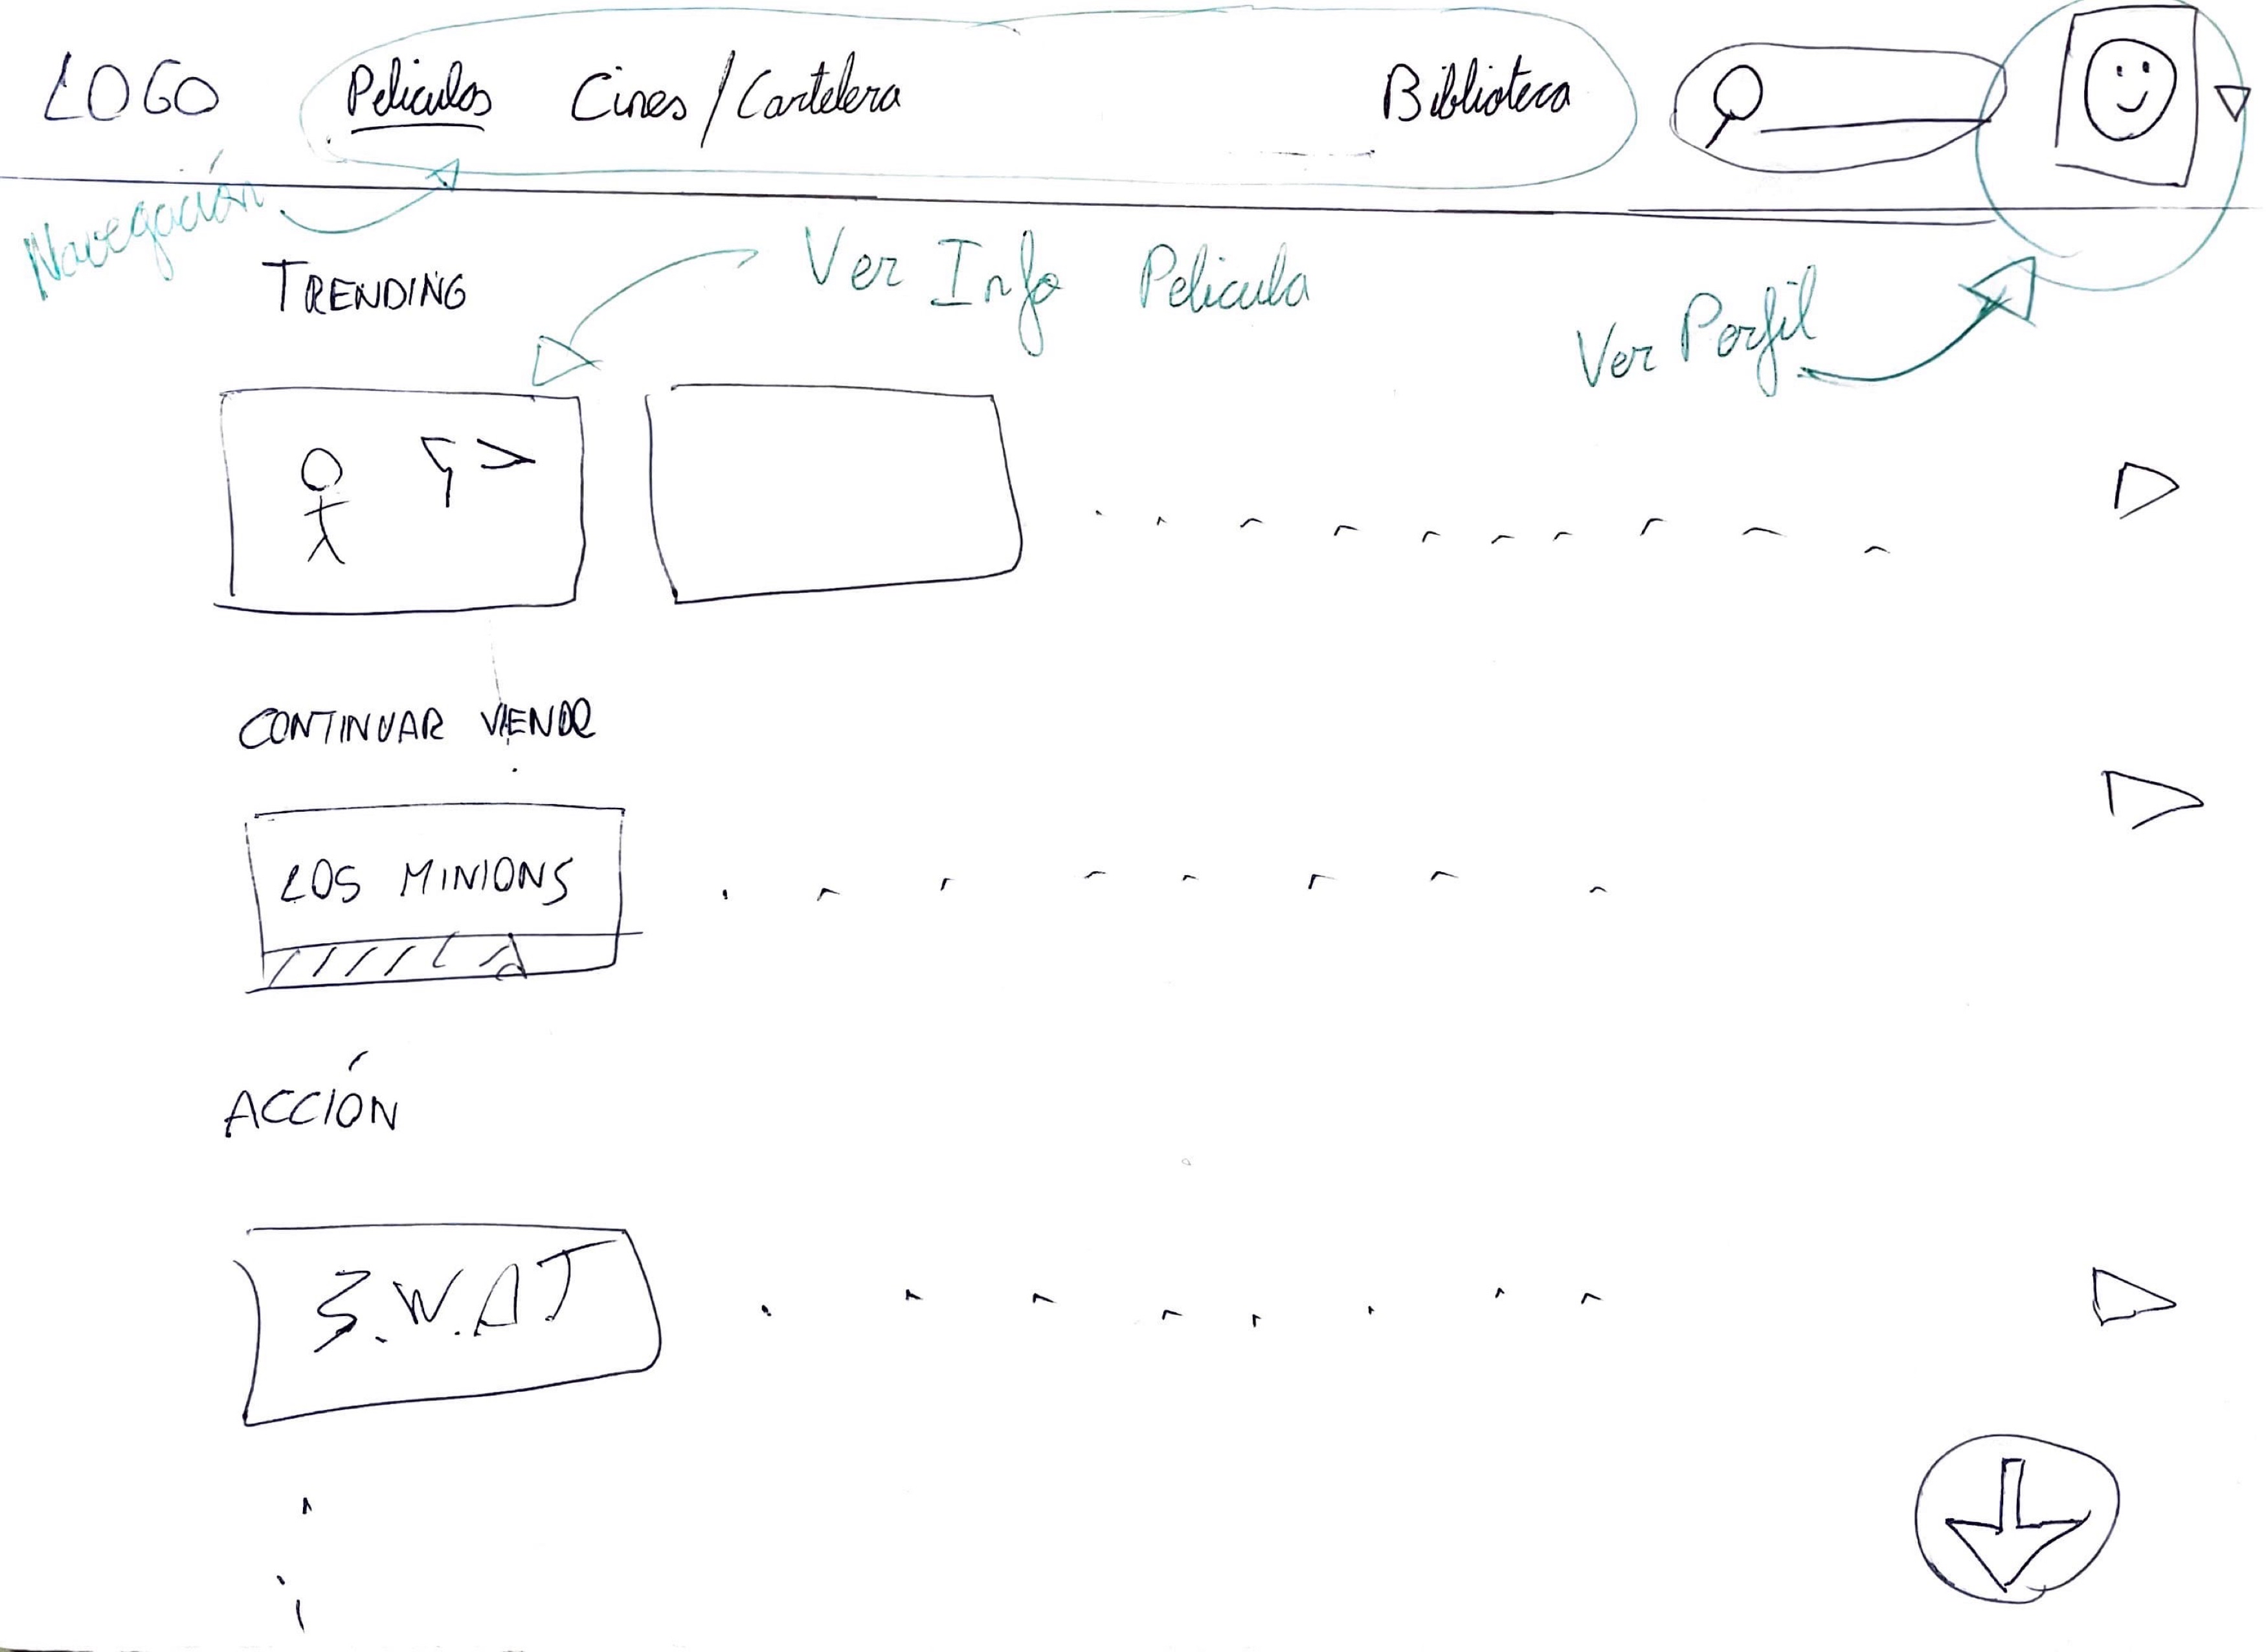 LOGO Peliculas Cines / Cartelera Biblioteca
Navegación
TRENDING
Ver Info Pelicula
Ver Perfil
CONTINUAR VIENDO
LOS MINIONS
ACCIÓN
S.W.AT